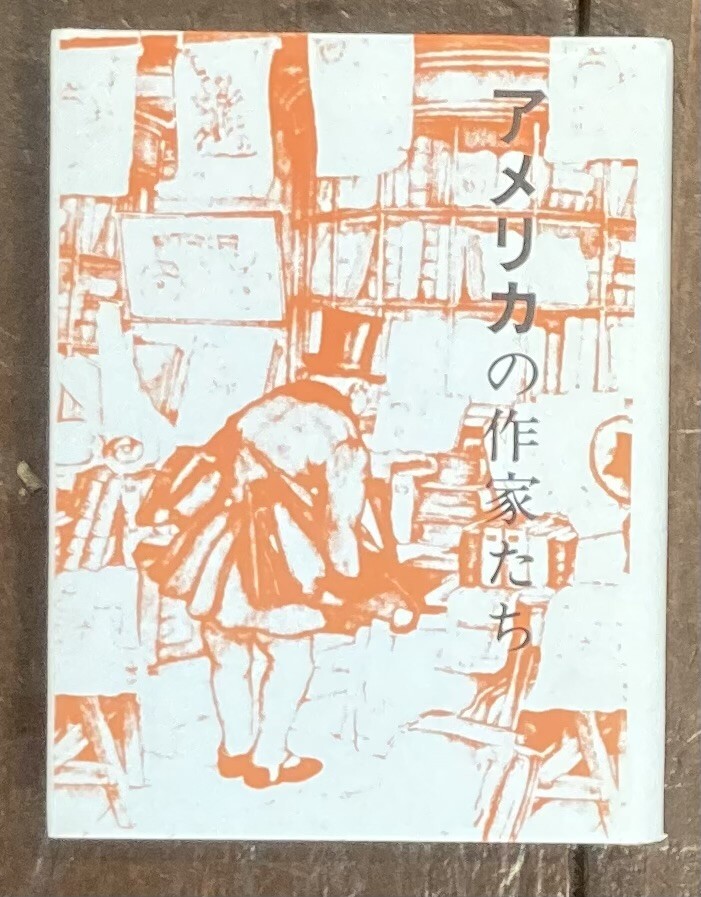 アメリカの作家たち